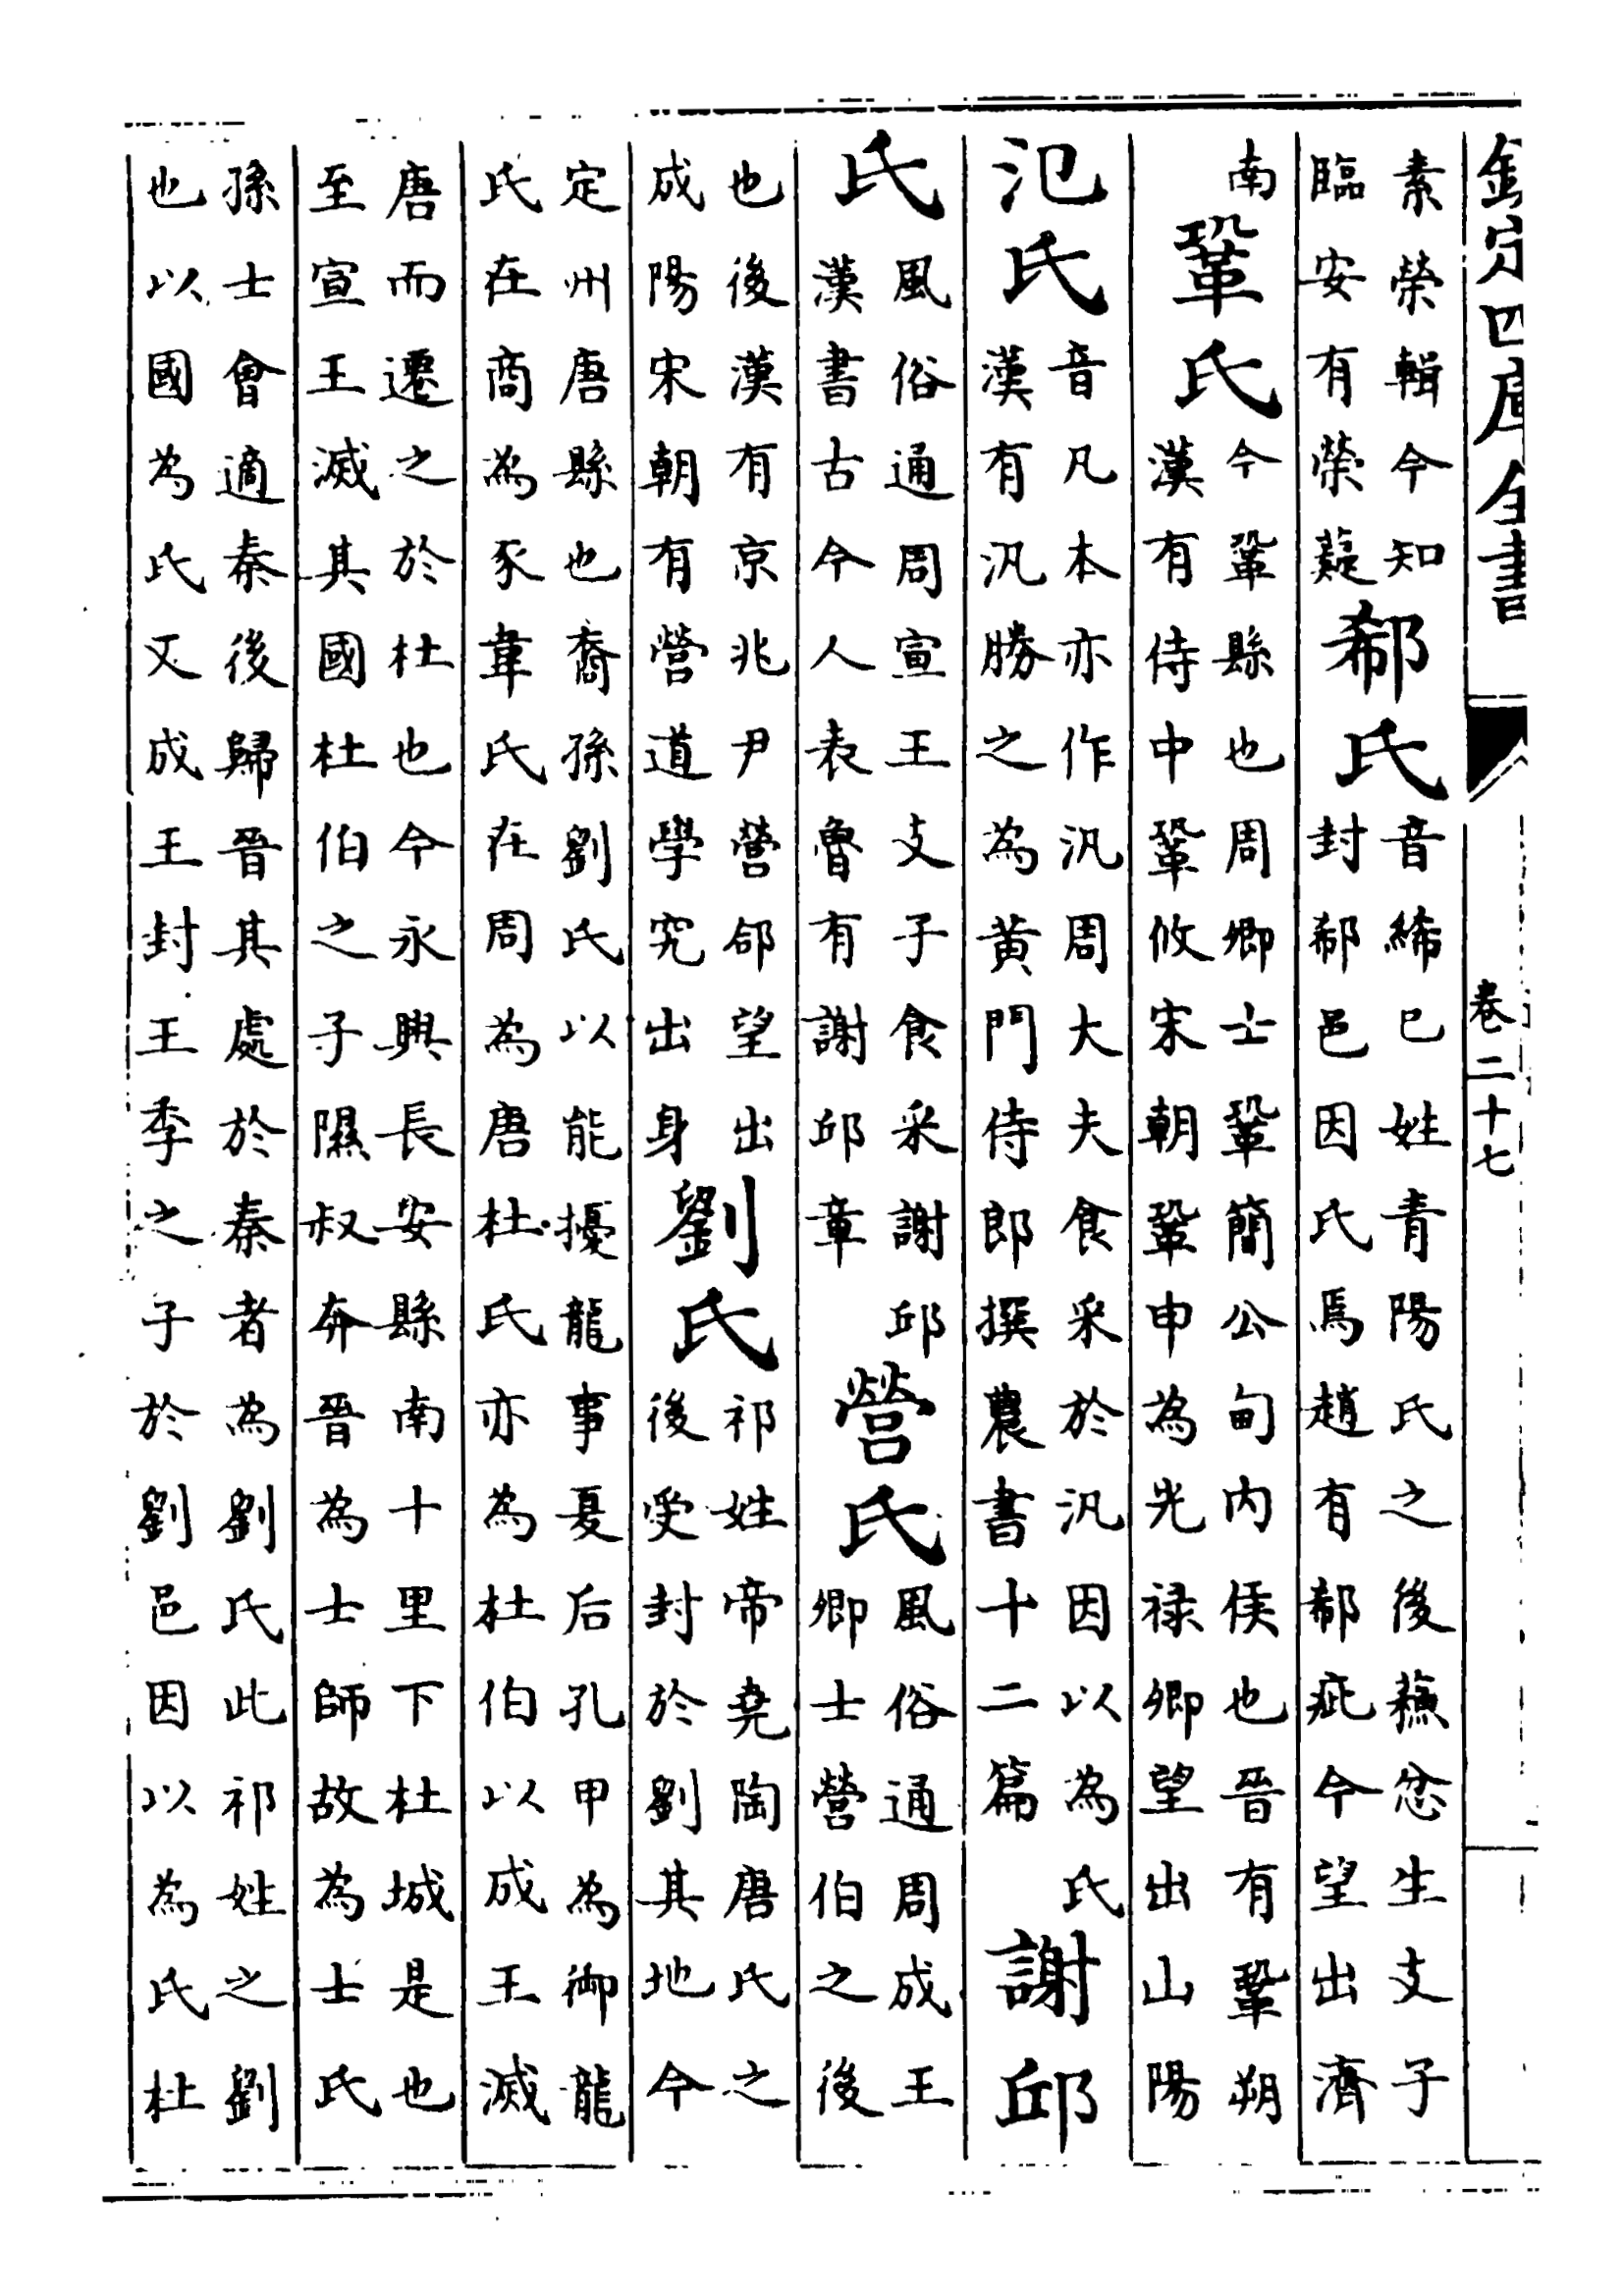 欽定四庫全書 卷二十七
素榮輯今知
臨安有榮薿
郗氏
音絺已姓青陽氏之後蘇忿生支子
封郗邑因氏焉趙有郗疵今望出濟
南
鞏氏
今鞏縣也周卿士鞏簡公甸内侯也晉有鞏朔
漢有侍中鞏攸宋朝鞏申為光禄卿望出山陽
氾氏
音凡本亦作汎周大夫食采於汎因以為氏
漢有汎勝之為黄門侍郎撰農書十二篇
謝邱
氏
風俗通周宣王支子食采謝邱
漢書古今人表魯有謝邱章
營氏
風俗通周成王
卿士營伯之後
也後漢有京兆尹營郃望出
成陽宋朝有營道學究出身
劉氏
祁姓帝堯陶唐氏之
後受封於劉其地今
定州唐縣也裔孫劉氏以能擾龍事夏后孔甲為御龍
氏在商為豕韋氏在周為唐杜氏亦為杜伯以成王滅
唐而遷之於杜也今永興長安縣南十里下杜城是也
至宣王滅其國杜伯之子隰叔奔晉為士師故為士氏
孫士會適秦後歸晉其處於秦者為劉氏此祁姓之劉
也以國為氏又成王封王季之子於劉邑因以為氏杜